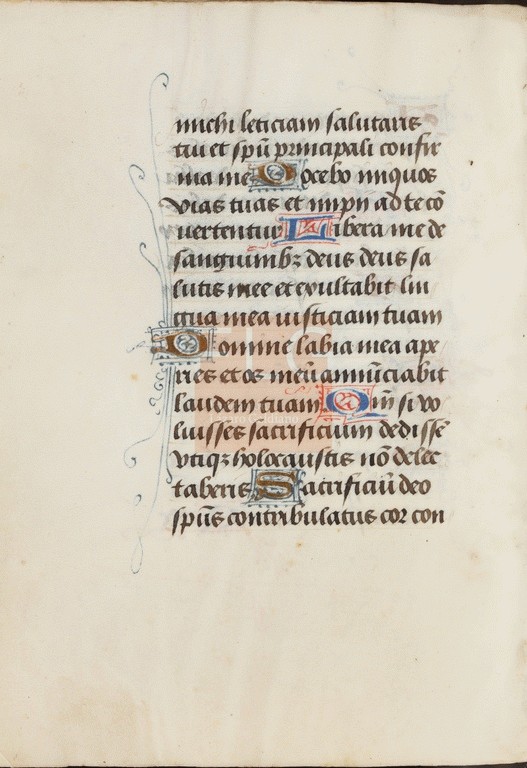 michi leticiam salutaris
tui et spū principali confir
ma me Docebo iniquos
vias tuas et impii ad te cō
uertentur Libera me de
sanguinibꝫ deus deus sa
lutis mee et exultabit lin
gua mea iusticiam tuam
Domine labia mea ape
ries et os meū annūciabit
laudem tuam Qm̄ si vo
luisses sacrificium dedissē
vtiqꝫ holocaustis nō delec
taberis Sacrificiū deo
spūs contribulatus cor con